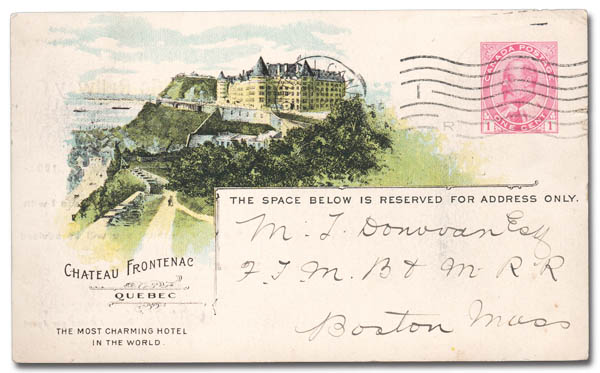 CANADA POSTAGE
1 ONE CENT 1
1
R
THE SPACE BELOW IS RESERVED FOR ADDRESS ONLY.
M. J. Donovan Esq
F. J. M. B & M. R R
Boston Mass
CHATEAU FRONTENAC
QUEBEC
THE MOST CHARMING HOTEL
IN THE WORLD.